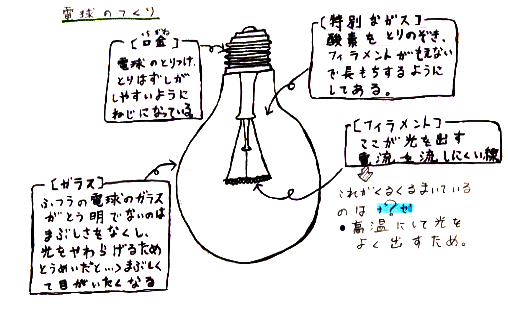 電球のつくり
[口金]
くちがね
電球のとりつけ、
とりはずしが
しやすいように
ねじになっている。
[特別なガス]
酸素をとりのぞき、
フィラメントがもえない
で長もちするように
してある。
[フィラメント]
ここが光を出す
電流を流しにくい線
これがくるくるまいている
のは なぜ?
●高温にして光を
よく出すため。
[ガラス]
ふつうの電球のガラス
がとう明でないのは
まぶしさをなくし、
光をやわらげるため
とうめいだと…>まぶしく
て目がいたくなる